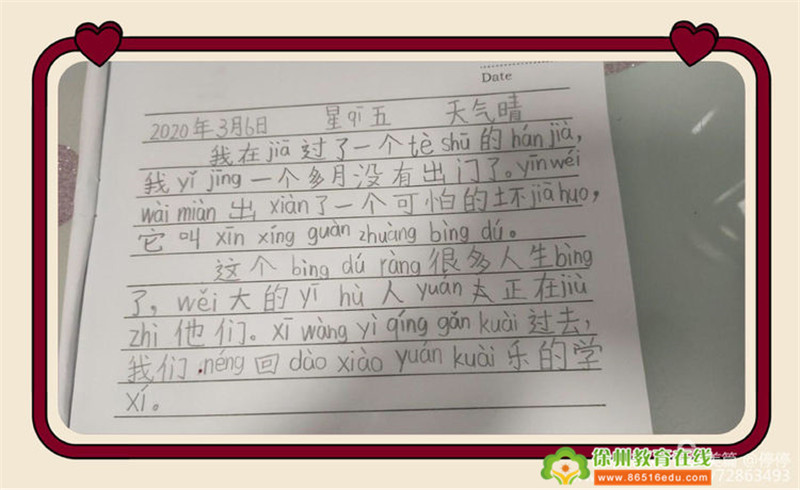 Date
2020年3月6日 星qī五 天气晴
我在jiā过了一个tè shū的hán jià,
我yǐ jīng一个多月没有出门了。yīn wéi
wài miàn出xiàn了一个可怕的坏jiā huo,
它叫xīn xíng guàn zhuàng bìng dú。
这个bìng dú ràng很多人生bìng
了,wěi大的yī hù人yuán正在jiù
zhì他们。xī wàng yì qíng gǎn kuài过去,
我们néng回dào xiào yuán kuài乐的学
xí。
徐州教育在线
www.86516edu.com
美篇 @停停
72863493